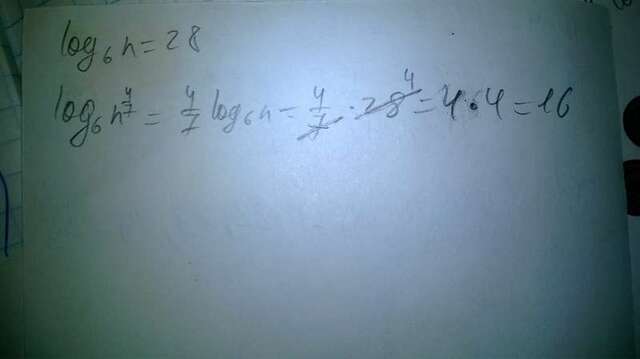 log₆ n = 28
log₆ n^(4/7) = 4/7 log₆ n = 4/7 · 28 ⁴ = 4 · 4 = 16